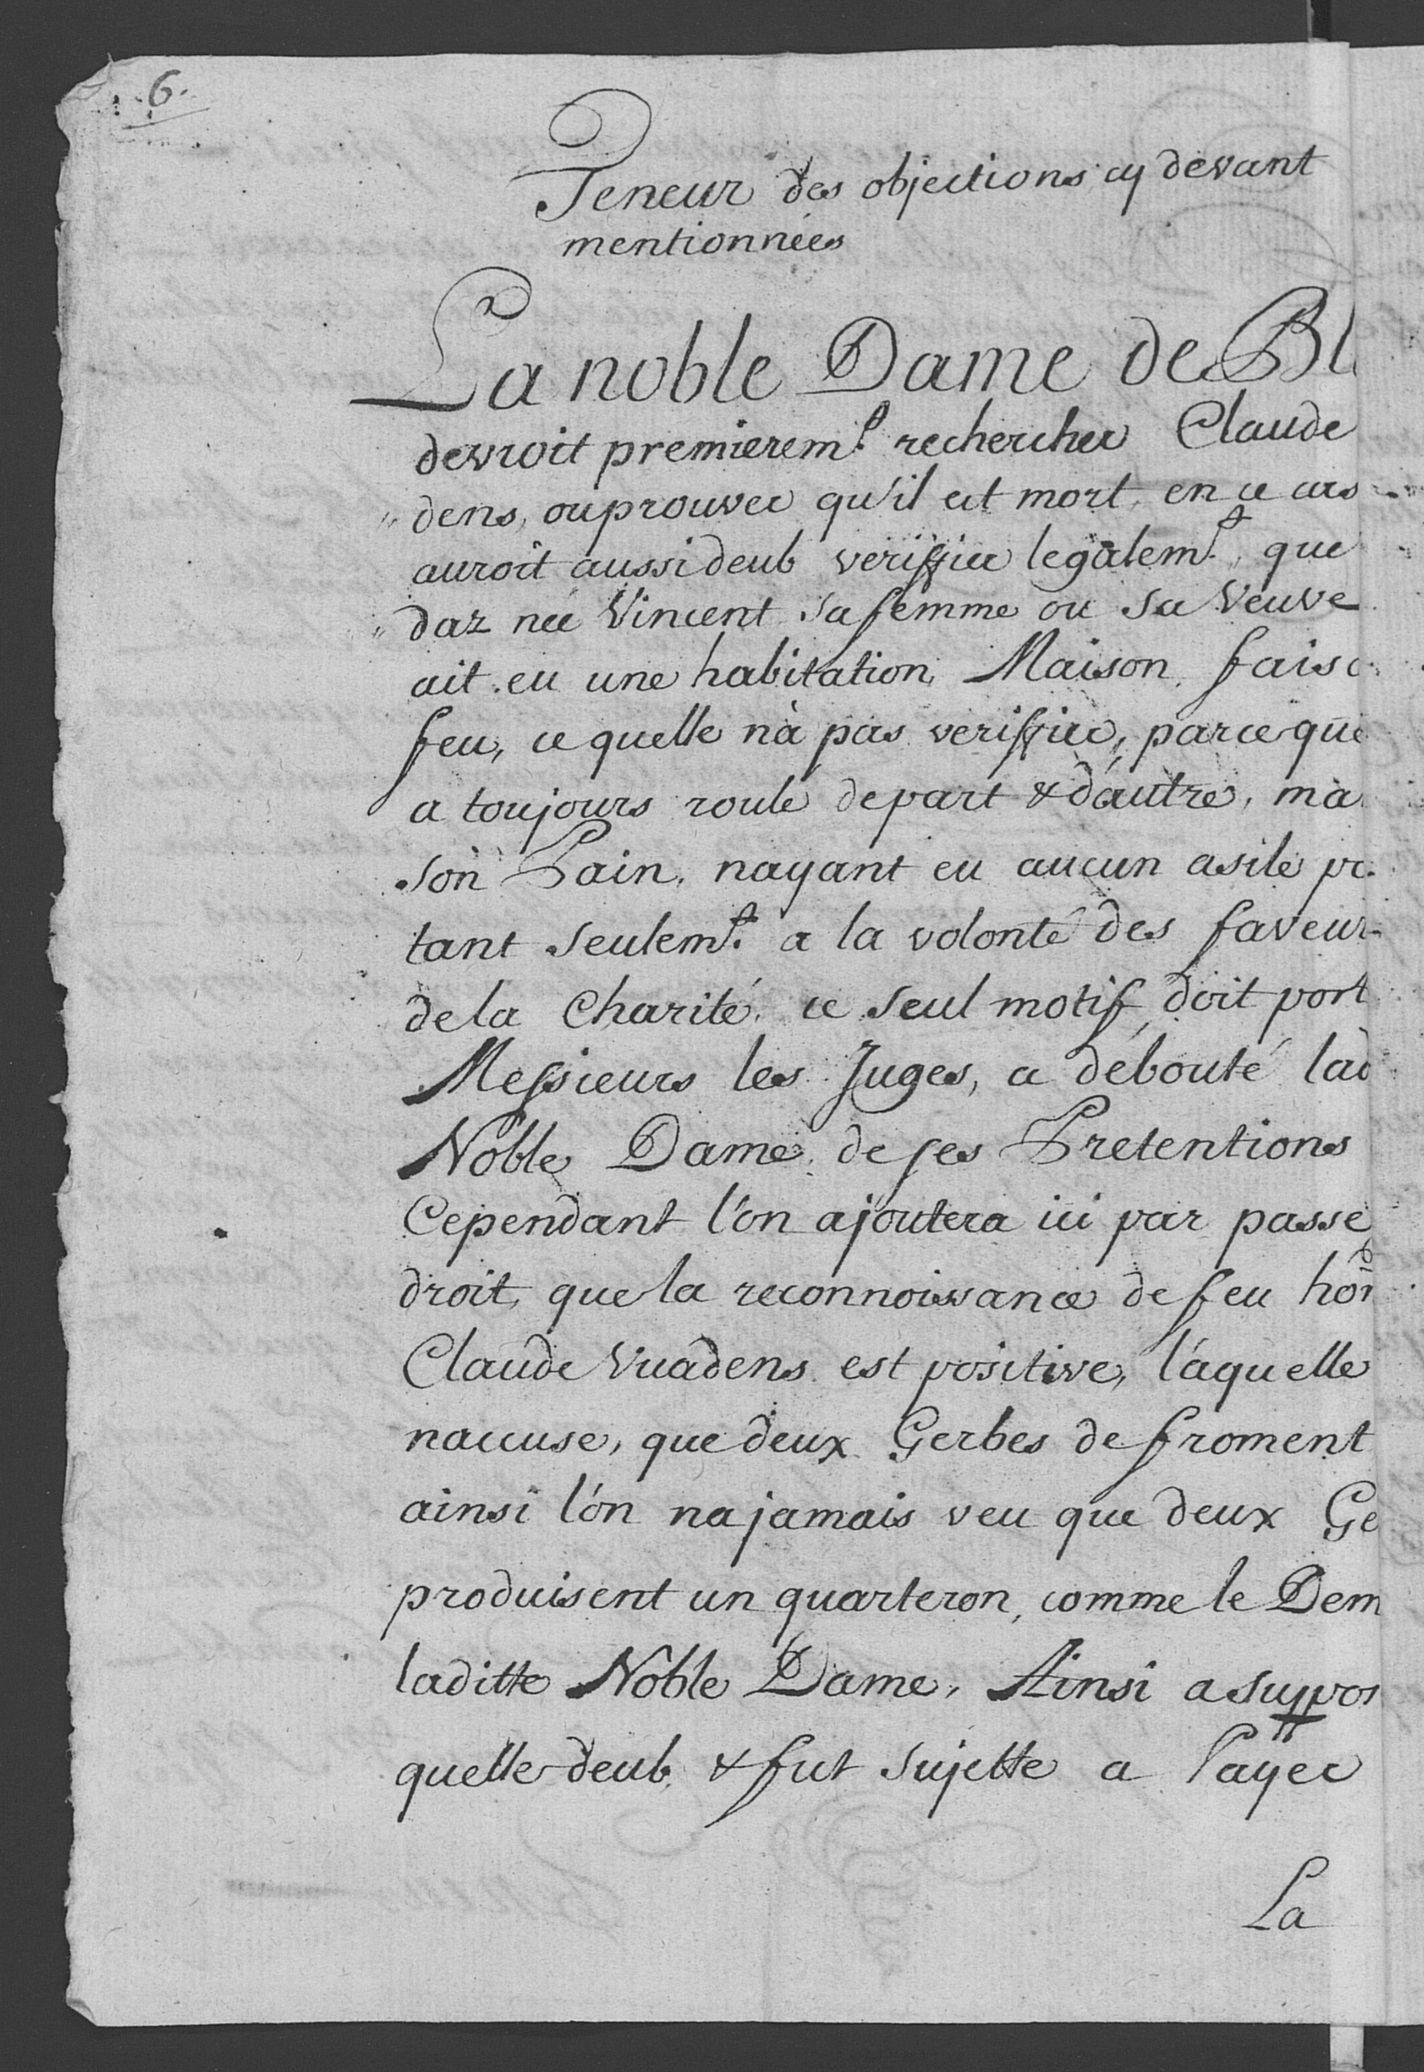 6.
Teneur des objections cy devant
mentionnées
La noble Dame de Bl
devroit premierem.t rechercher Claude
dens, ou prouver qu'il est mort, en ce cas
auroit aussi deub veriffier legalem.t, que
daz née Vincent sa femme ou sa Veuve
ait eu une habitation, Maison, fais
feu, ce quelle n'à pas veriffier, parceque
a toujours roulé depart & d'autre, m
son Pain, nayant eu aucun asile
tant seulem.t a la volonté des faveur
de la Charité. ce seul motif doit port
Messieurs les Juges, a débouté lad
Noble Dame de ses Pretentions
Cependant l'on ajoutera ici par passe
droit, que la reconnoissance de feu
Claude Vuadens est positive, l'aquelle
naccuse, que deux Gerbes de froment
ainsi l'on na jamais veu que deux Ge
produisent un quarteron, comme le Dem
laditte Noble Dame, Ainsi a suppos
quelle deub, & fut sujette a Payer
La